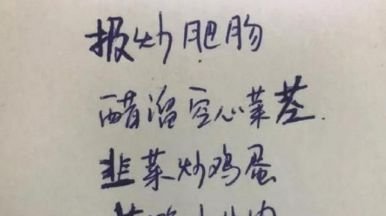 报炒肥肠
醋溜空心菜茎
韭菜炒鸡蛋